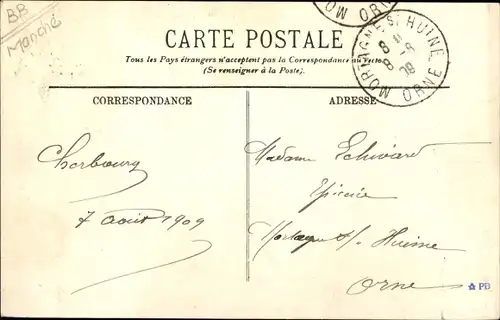 BB
Manche
CARTE POSTALE
Tous les Pays étrangers n'acceptent pas la Correspondance au recto.
(Se renseigner à la Poste).
MORTAGNE S. HUINE
8 8
8 09
ORNE
ORNE MO
CORRESPONDANCE
ADRESSE
Cherbourg
7 Août 1909
Madame
Epicière
Mortagne s/ Huine
Orne
PD